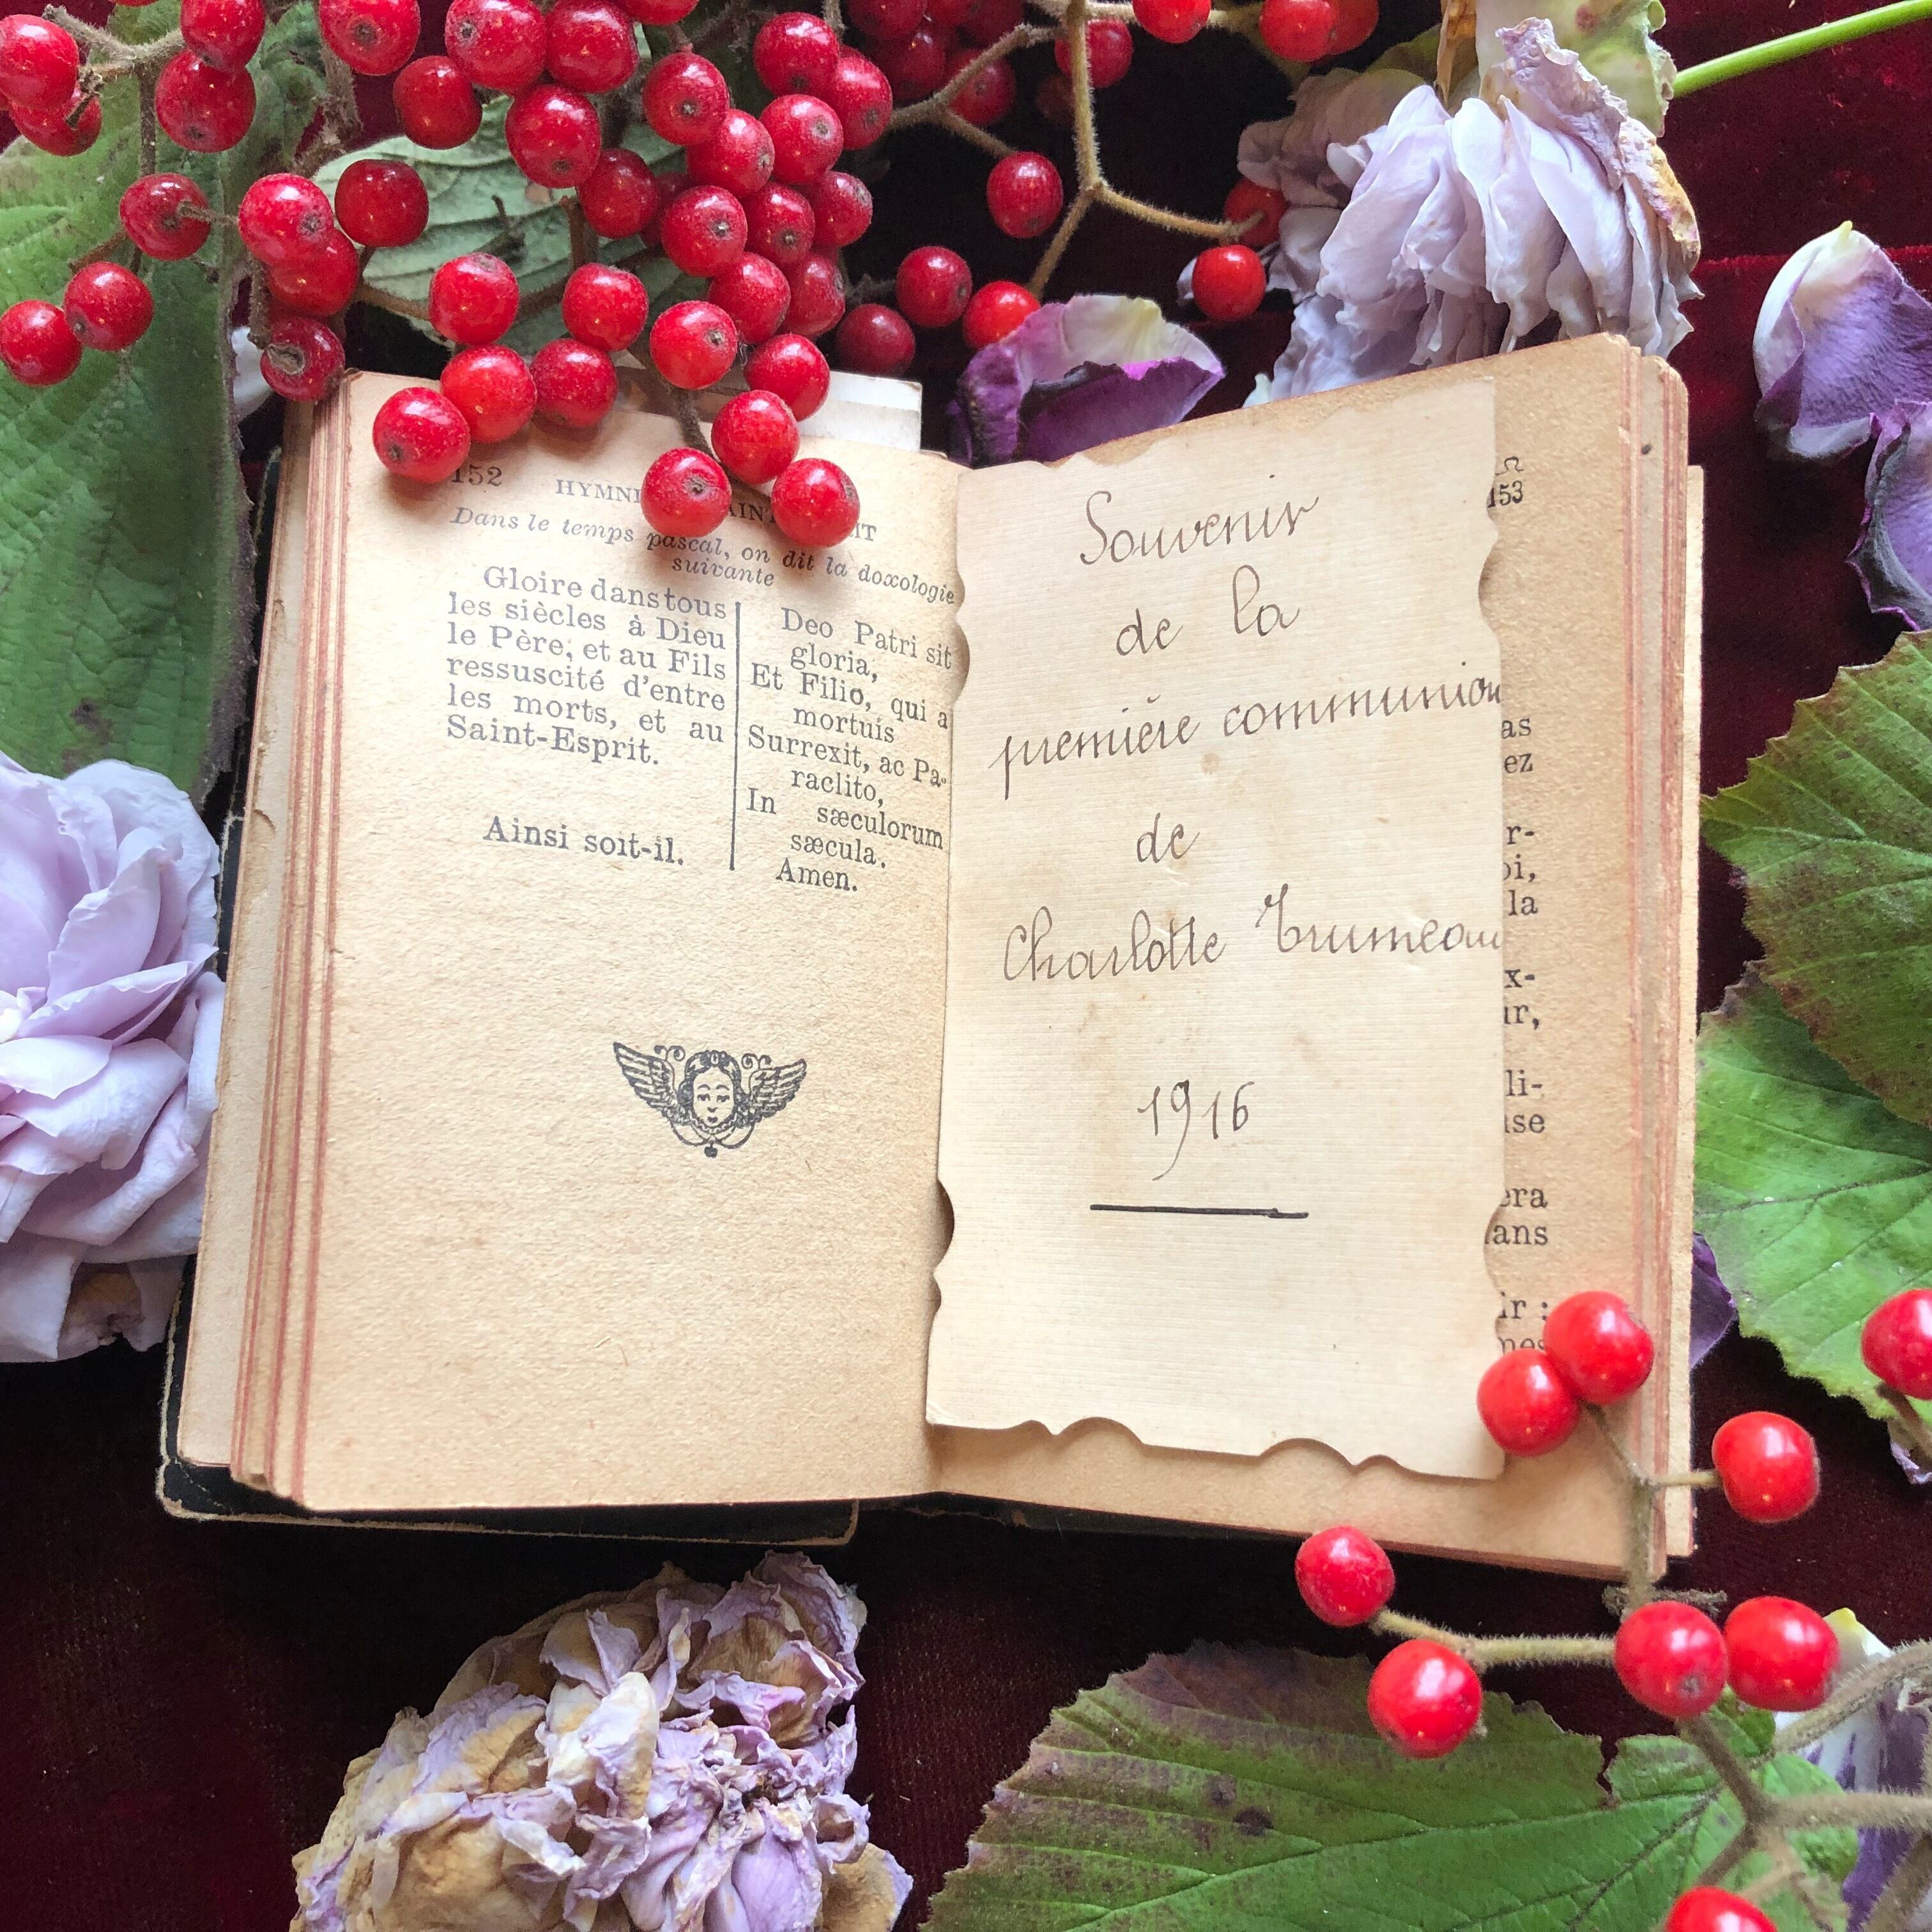 152
Dans le temps pascal, on dit la doxologie
suivante
Gloire dans tous
les siècles à Dieu
le Père, et au Fils
ressuscité d'entre
les morts, et au
Saint-Esprit.
Ainsi soit-il.
Deo Patri sit
gloria,
Et Filio, qui a
mortuis
Surrexit, ac Pa-
raclito,
In sæculorum
sæcula.
Amen.
153
Souvenir
de la
première communion
de
Charlotte Trumeau
1916
la